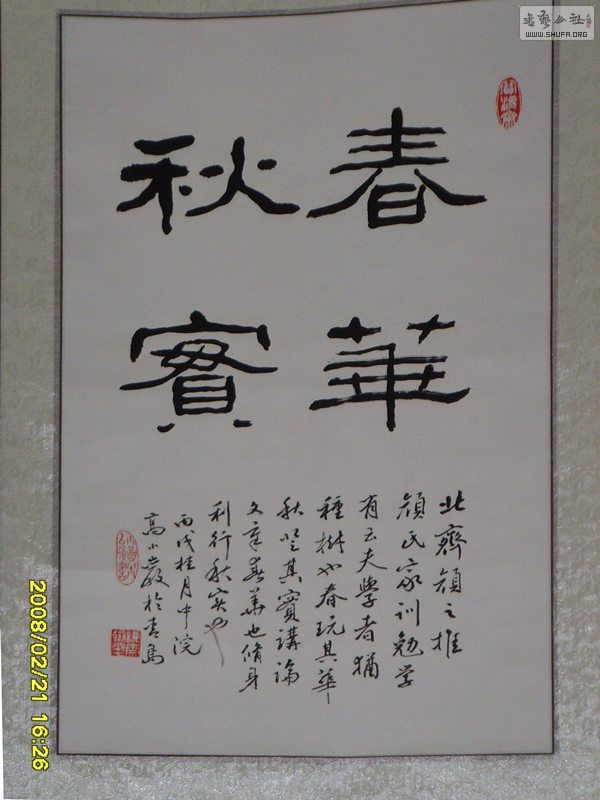 春華
秋實
北齊顏之推
顏氏家训勉学
有云夫學者猶
種樹也春玩其華
秋登其實講論
文章春華也脩身
利行秋实也
丙戌桂月中浣
高小巖於青島
WWW.SHUFA.ORG
2008/02/21 16:26